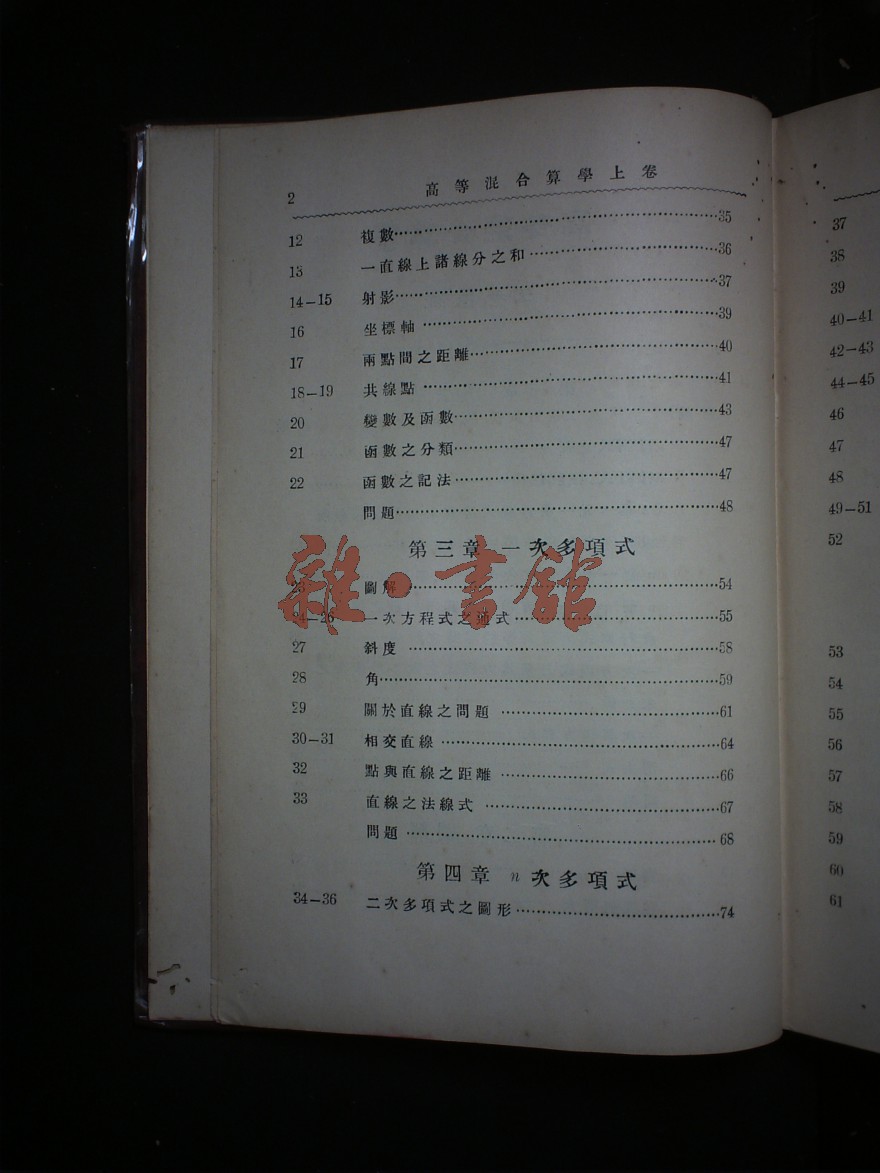 2 高等混合算學上卷
12 複數 35
13 一直線上諸線分之和 36
14—15 射影 37
16 坐標軸 39
17 兩點間之距離 40
18—19 共線點 41
20 變數及函數 43
21 函數之分類 47
22 函數之記法 47
問題 48
第三章 一次多項式
23 圖解 54
24—26 一次方程式之通式 55
27 斜度 58
28 角 59
29 關於直線之問題 61
30—31 相交直線 64
32 點與直線之距離 66
33 直線之法線式 67
問題 68
第四章 n次多項式
34—36 二次多項式之圖形 74
雜·書館
37
38
39
40—41
42—43
44—45
46
47
48
49—51
52
53
54
55
56
57
58
59
60
61